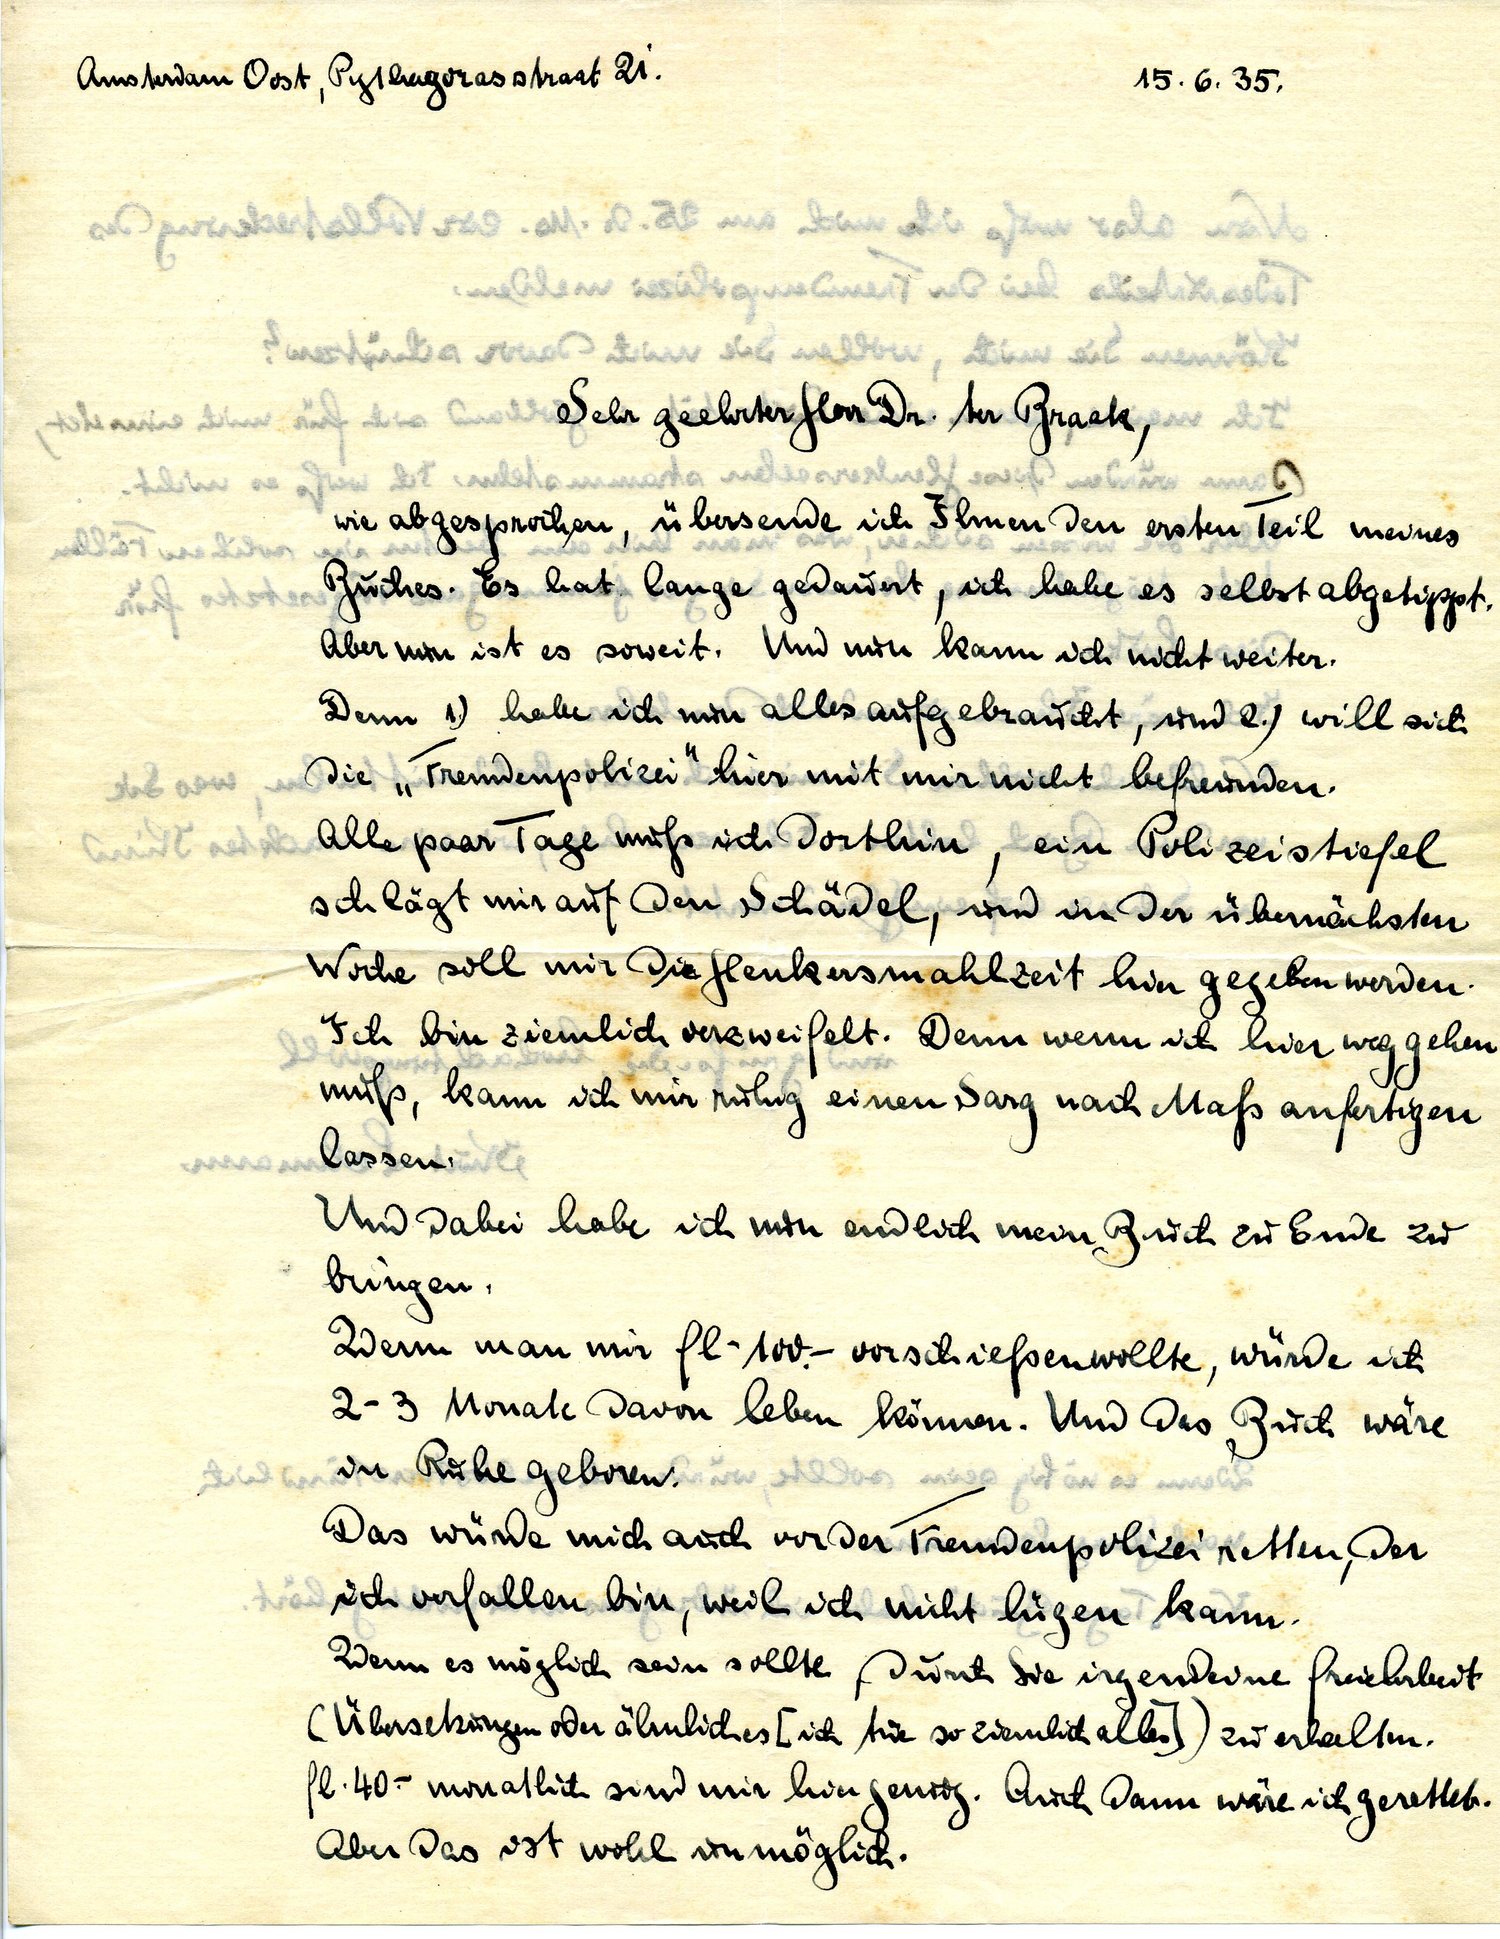 Amsterdam Oost, Pythagorasstraat 21.
15.6.35.
Sehr geehrter Herr Dr. ter Braak,
wie abgesprochen, übersende ich Ihnen den ersten Teil meines
Buches. Es hat lange gedauert, ich habe es selbst abgetippt.
Aber nun ist es soweit. Und nun kann ich nicht weiter.
Denn 1.) habe ich nun alles aufgebraucht, und 2.) will sich
die „Fremdenpolizei" hier mit mir nicht befreunden.
Alle paar Tage muß ich dorthin, ein Polizeistiefel
schlägt mir auf den Schädel, und in der übernächsten
Woche soll mir die Henkersmahlzeit hier gegeben werden.
Ich bin ziemlich verzweifelt. Denn wenn ich hier weggehen
muß, kann ich mir ruhig einen Sarg nach Maß anfertigen
lassen.
Und dabei habe ich nun endlich mein Buch zu Ende zu
bringen.
Wenn man mir fl. 100.- vorschießen wollte, würde ich
2-3 Monate davon leben können. Und das Buch wäre
in Ruhe geboren.
Das würde mich auch vor der Fremdenpolizei retten, der
ich verfallen bin, weil ich nicht lügen kann.
Wenn es möglich sein sollte, durch Sie irgendeine freie Arbeit
(Übersetzungen oder ähnliches [ich tue so ziemlich alles]) zu erhalten.
fl. 40.- monatlich sind mir hier genug. Auch dann wäre ich gerettet.
Aber das ist wohl unmöglich.